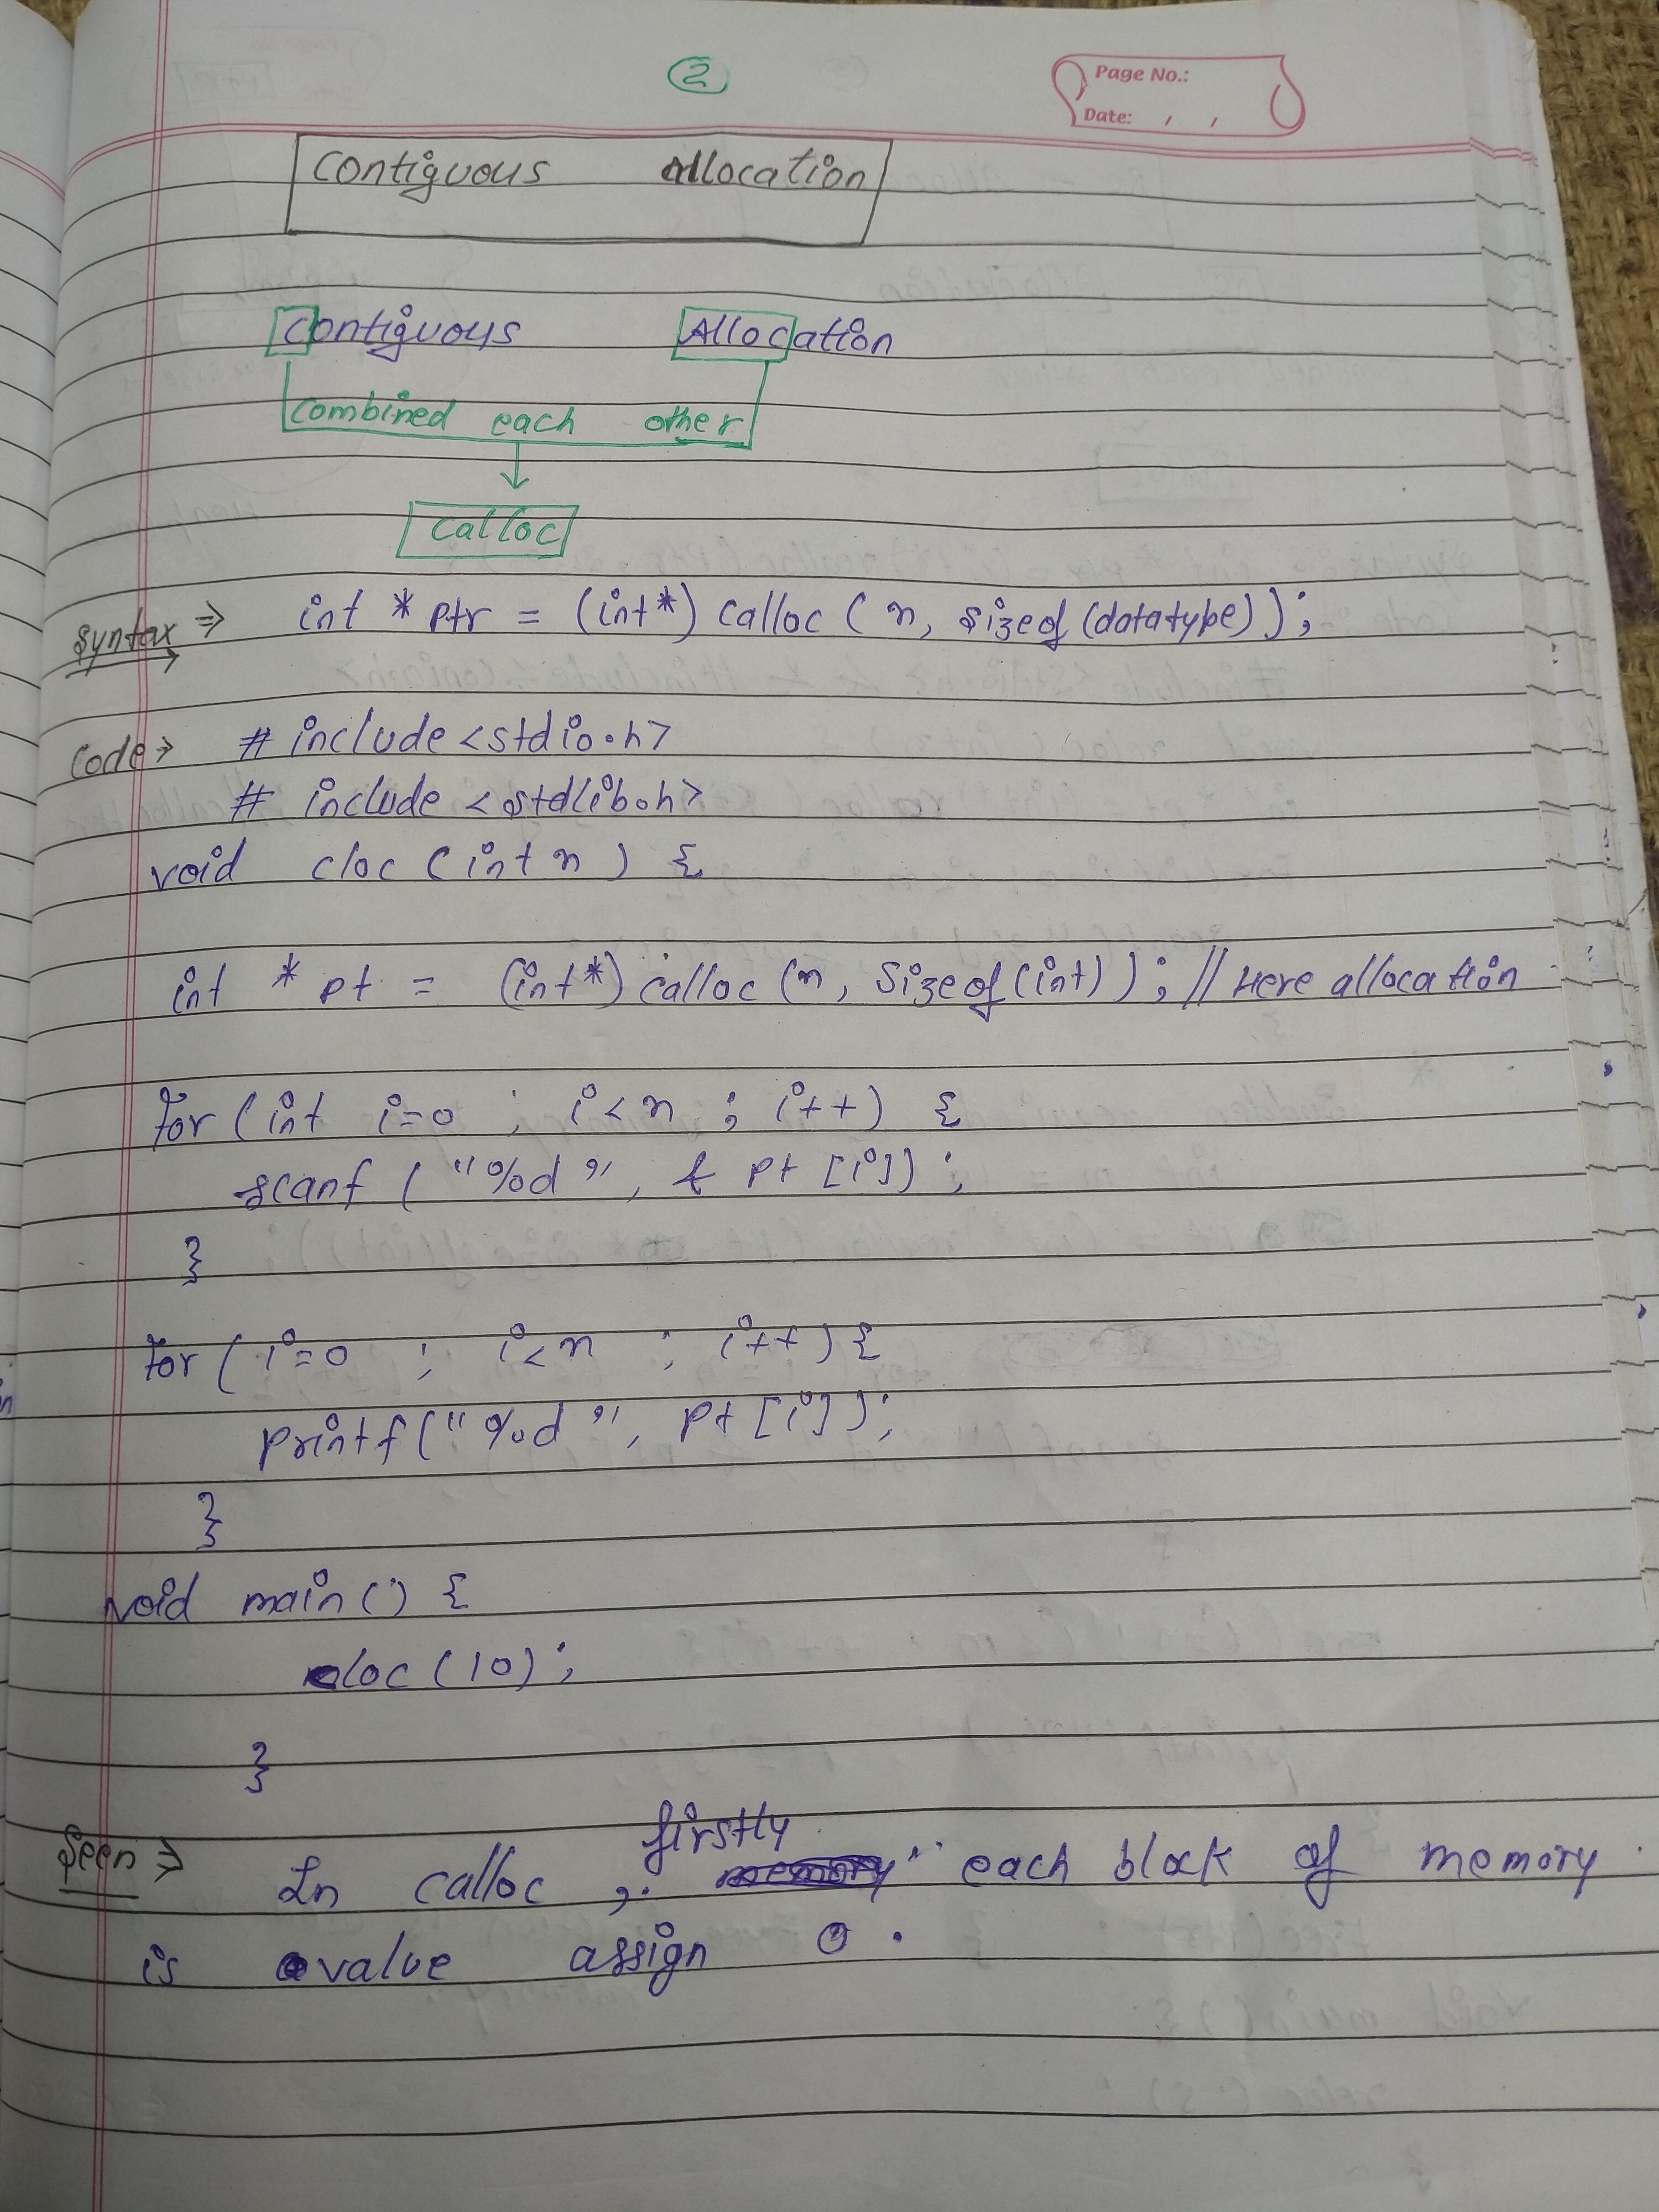 2
Page No.:
Date: , ,
Contiguous Allocation
Contiguous Allocation
Combined each other
Calloc
Syntax ⇒ int * ptr = (int*) calloc ( n, sizeof (datatype) ) ;
Code ⇒ # include <stdio.h>
# include <stdlib.h>
void cloc ( int n ) {
int * pt = (int*) calloc (n, Sizeof (int) ) ; // Here allocation
for ( int i=0 ; i<n ; i++) {
scanf ( "%d", & pt [i]) ;
}
for ( i=0 ; i<n ; i++) {
printf ("%d", pt [i]) ;
}
void main () {
cloc (10) ;
}
Seen ⇒ In calloc , firstly each block of memory
is value assign 0 .